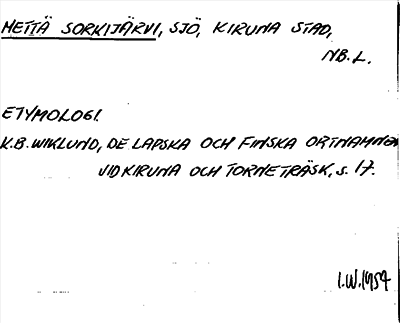 METTÄ SORKIJÄRVI, SJÖ, KIRUNA STAD,
NB. L.
ETYMOLOGI
K.B. WIKLUND, DE LAPSKA OCH FINSKA ORTNAMNEN
VID KIRUNA OCH TORNETRÄSK, s. 17.
I.W. 1954